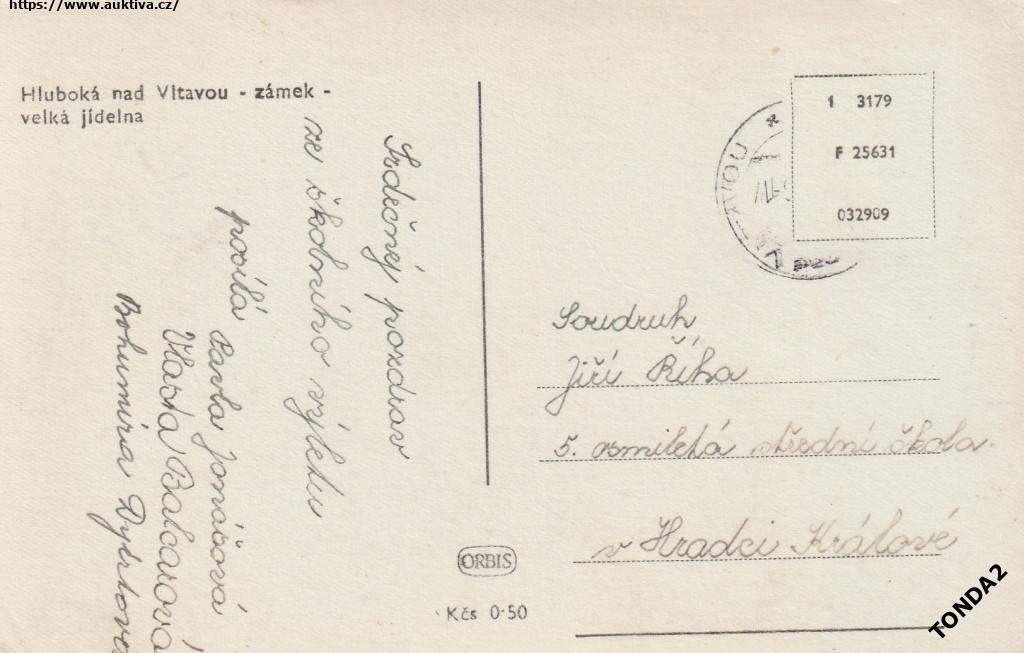 https://www.auktiva.cz/
Hluboká nad Vltavou - zámek -
velká jídelna
Srdečný pozdrav
ze školního výletu
posílá Pavla Jonášová
Vlasta Balcarová
Bohumira
1 3179
F 25631
032909
VOU
Soudruh
Jiří Říha
5. osmiletá střední škola
v Hradci Králové
ORBIS
Kčs 0·50
TONDA2